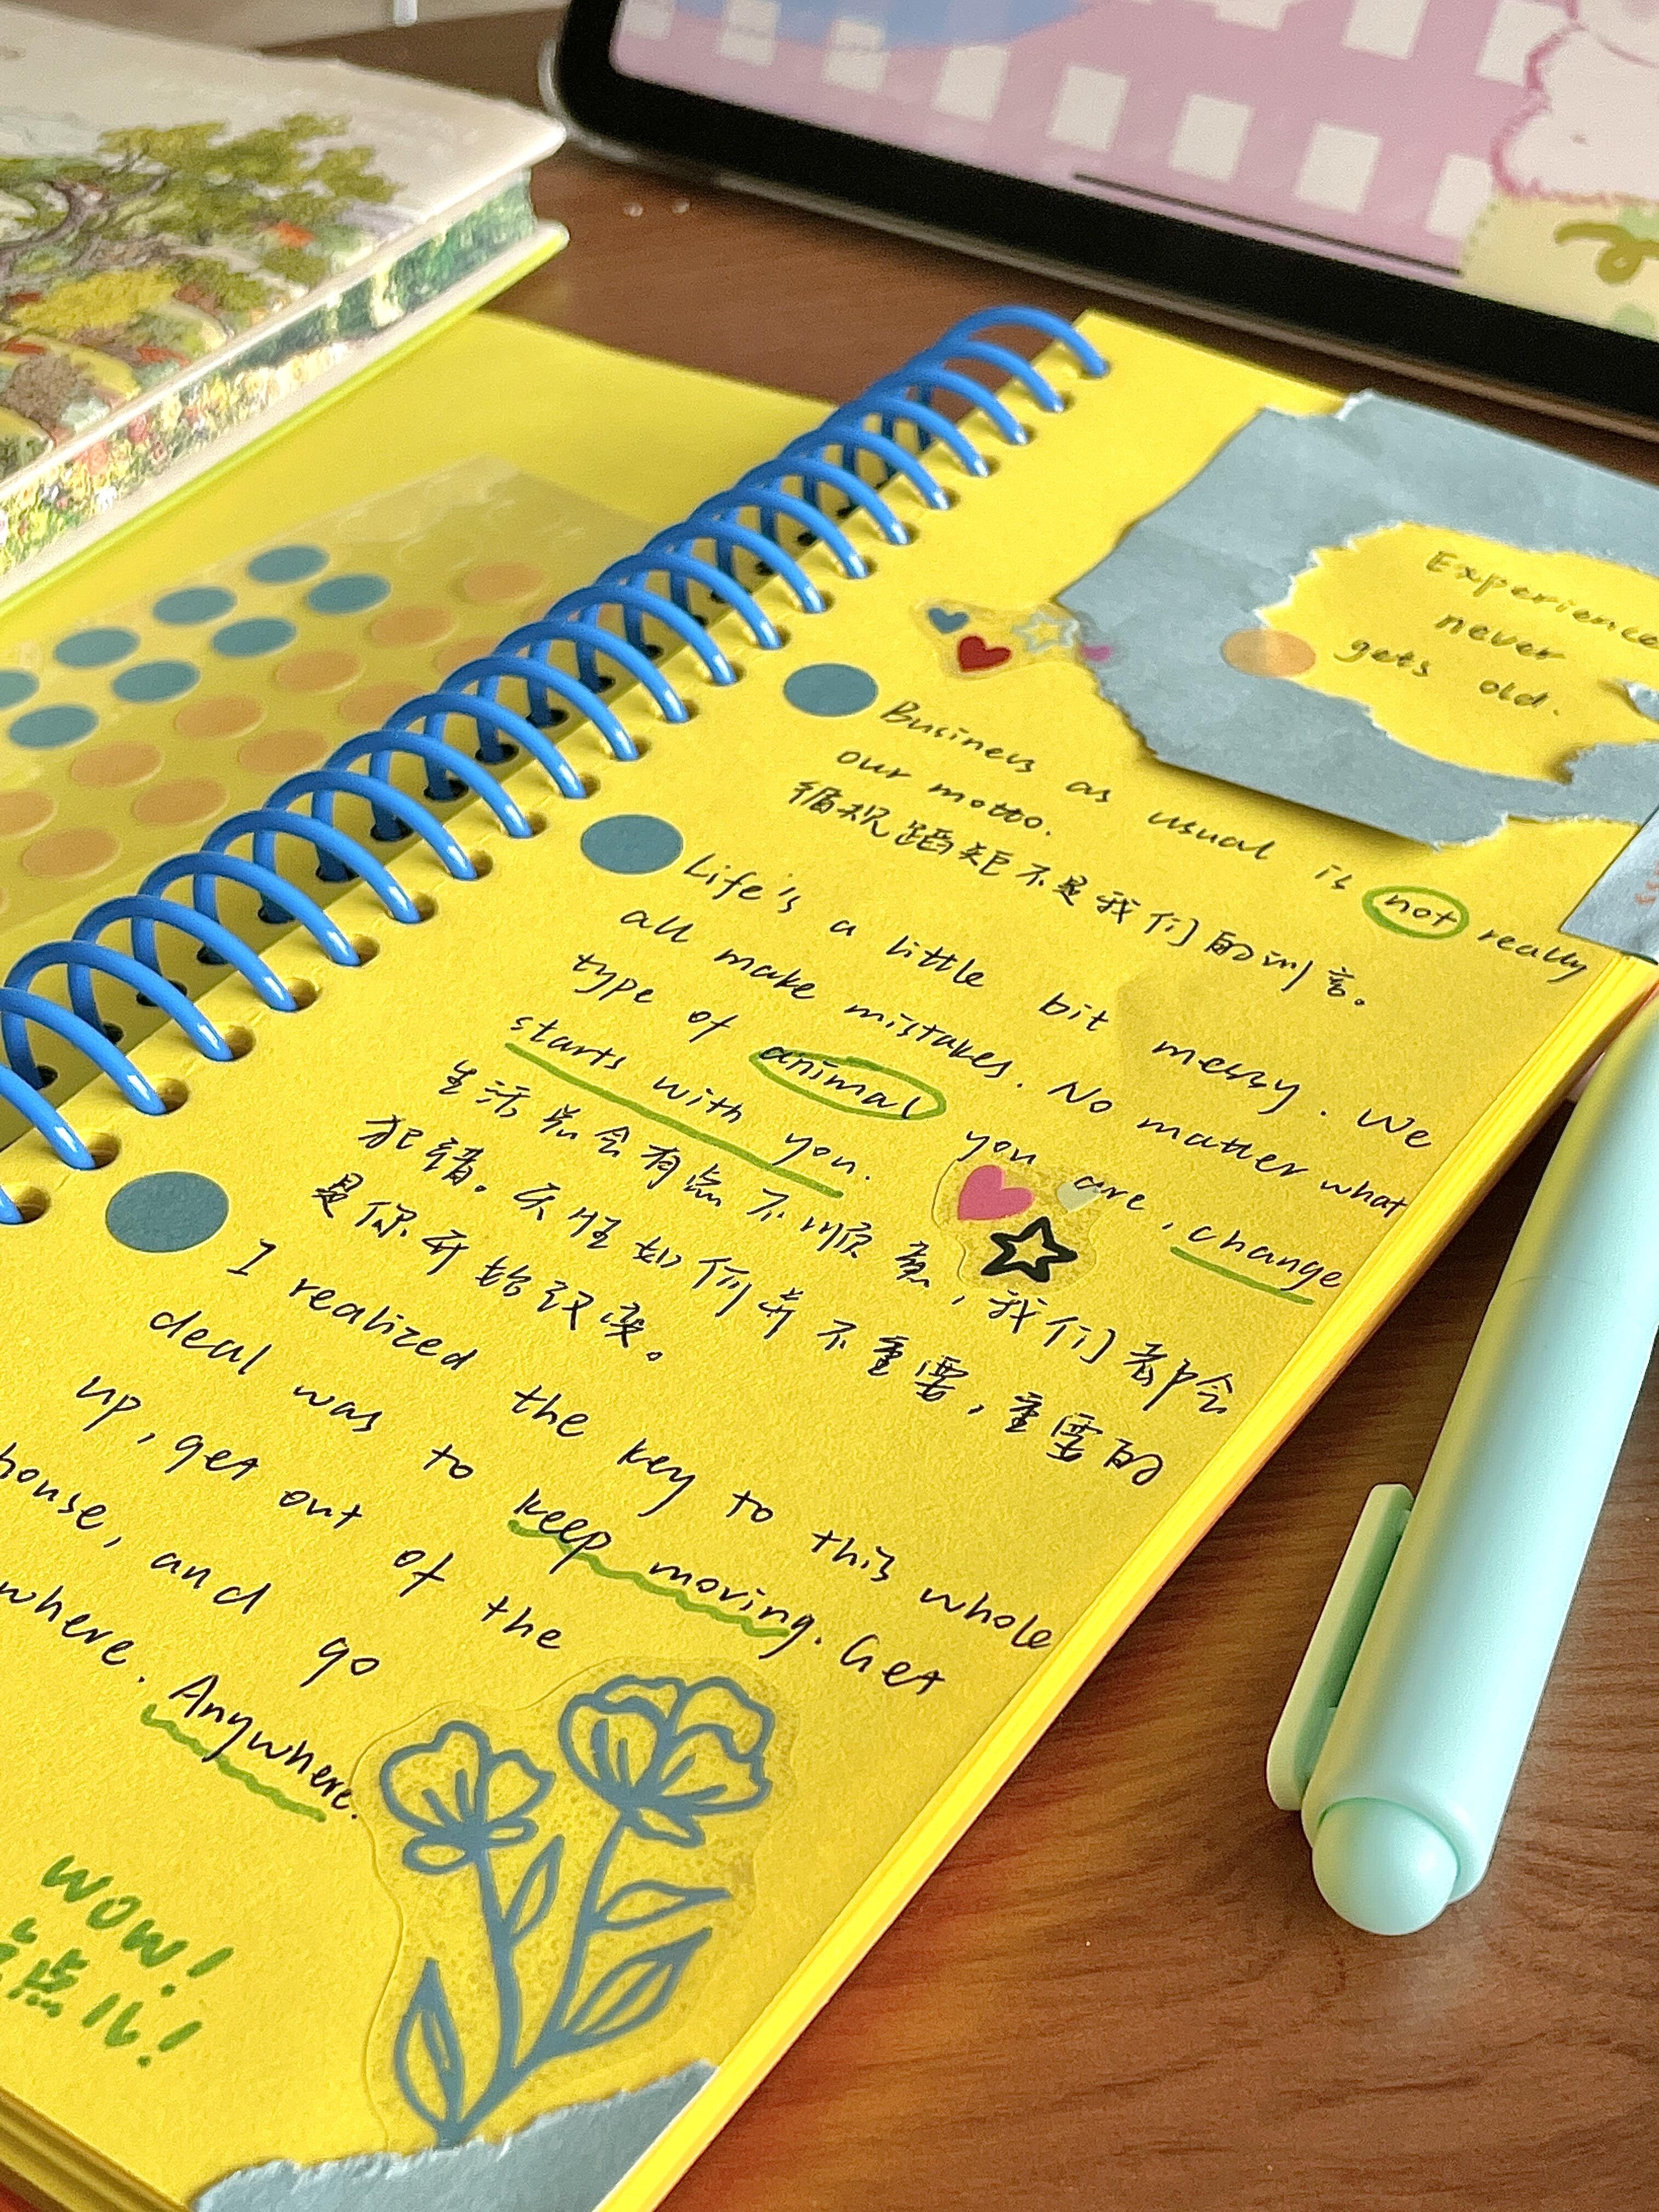 Experience
never
gets old.
Business as usual is not really
our motto.
循规蹈矩不是我们的训言。
Life's a little bit messy. We
all make mistakes. No matter what
type of animal you are, change
starts with you.
生活总会有点不顺意,我们都会
犯错。天性如何并不重要,重要的
是你开始改变。
I realized the key to this whole
deal was to keep moving. Get
up, get out of the
house, and go
where. Anywhere.
wow!
点儿!